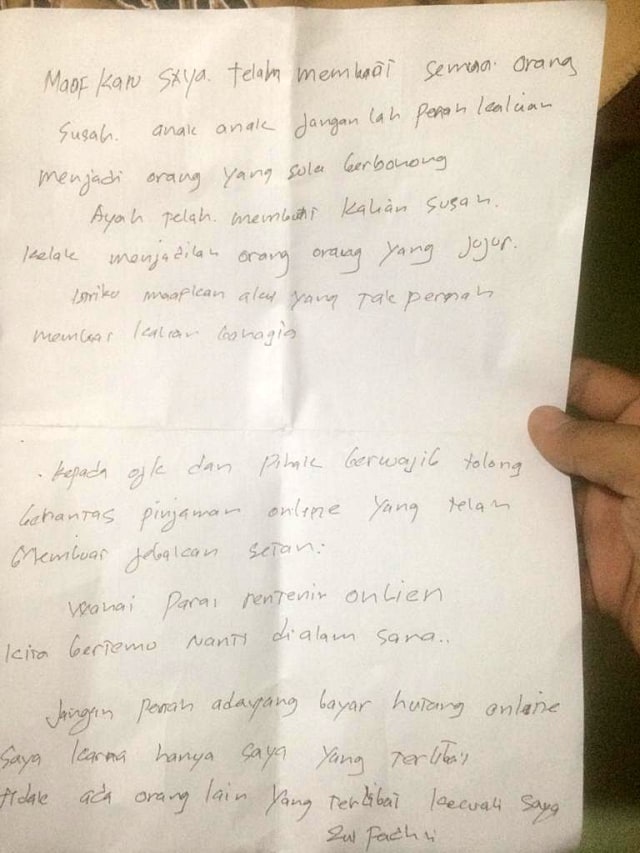 Maaf kan saya telah membuat semua orang
susah. anak anak jangan lah pernah kalian
menjadi orang yang suka berbohong
Ayah telah membuat kalian susah.
kelak menjadilah orang orang yang jujur.
istriku maafkan aku yang tak pernah
membuat kalian bahagia
. kepada ojk dan pihak berwajib tolong
berantas pinjaman online yang telah
membuat jebakan setan:
wahai para rentenir onlien
kita bertemu nanti di alam sana..
Jangan pernah ada yang bayar hutang online
saya karna hanya saya yang terlibat
tidak ada orang lain yang terlibat kecuali saya
Zul Fadhli